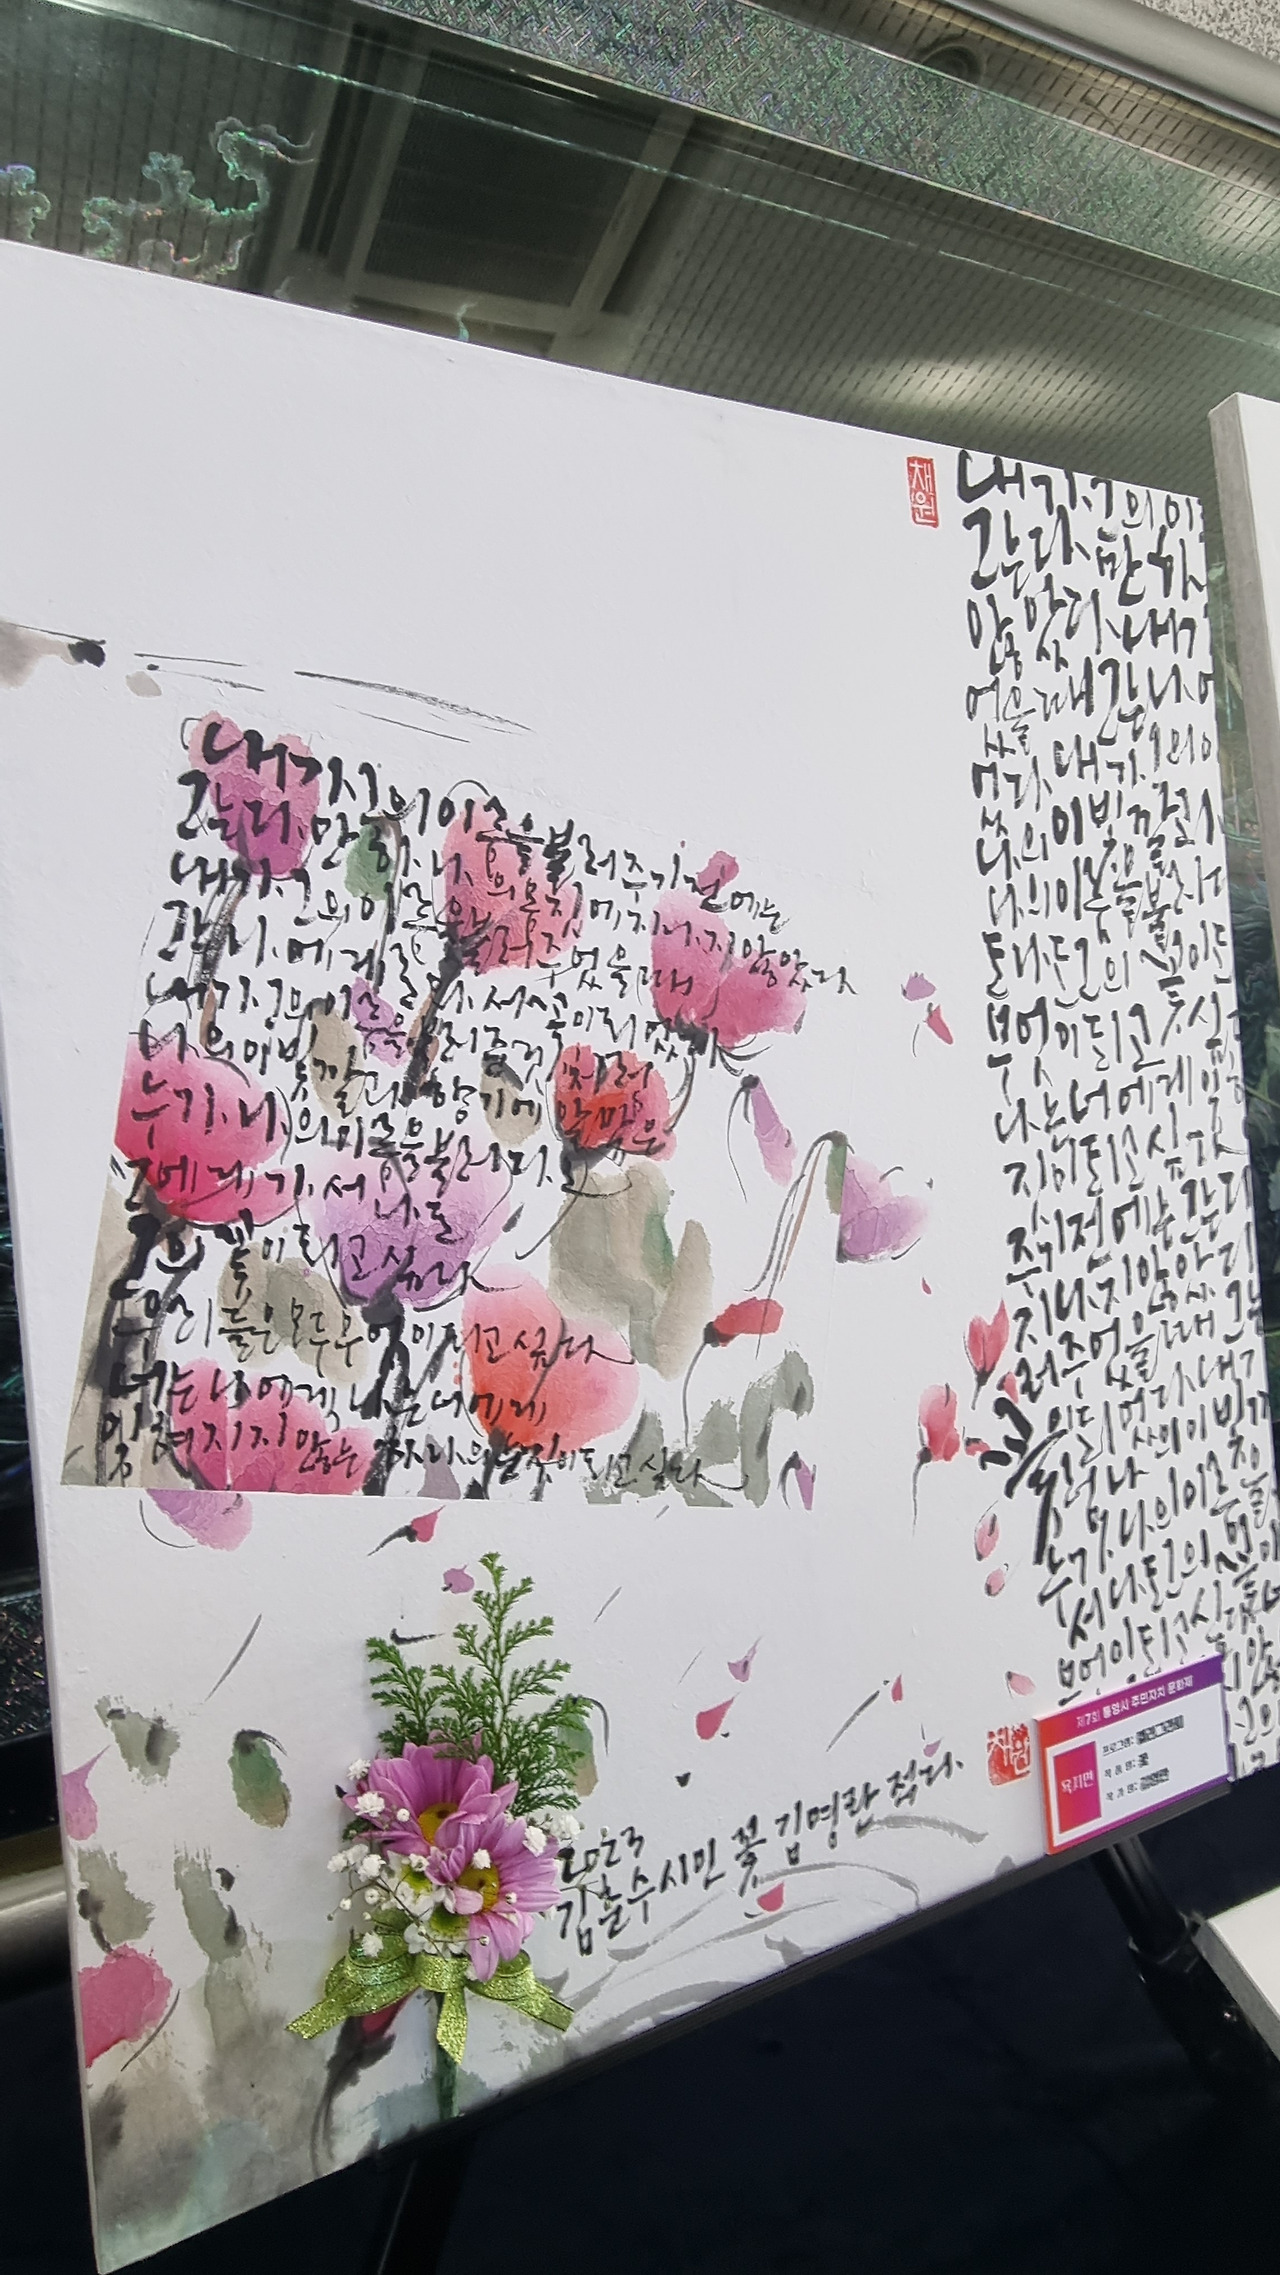 내가 그의 이름을 불러주기 전에는
그는 다만 하나의 몸짓에 지나지 않았다
내가 그의 이름을 불러주었을 때
그는 나에게로 와서 꽃이 되었다
내가 그의 이름을 불러준 것처럼
나의 이 빛깔과 향기에 알맞은
누가 나의 이름을 불러다오
그에게로 가서 나도
그의 꽃이 되고 싶다
우리들은 모두 무엇이 되고 싶다
너는 나에게 나는 너에게
잊혀지지 않는 하나의 눈짓이 되고 싶다
채원
내가 그의 이
그는 다만 하
않았다 내가
었을 때 그는 나
었다 내가 그의 이
나의 이 빛깔과
나의 이름을 불러다
도 그의 꽃이 되
무엇이 되고 싶
나는 너에게 잊
짓이 되고 싶다
주기 전에는 그는 다
지나지 않았다
러주었을 때 그는
꽃이 되었다 내가
누가 나의 이름을
서 나도 그의 꽃이
무엇이 되고 싶다
2023
김춘수 시인 꽃 김명란 적다.
채원
제7회 통영시 주민자치 문화제
욕지면
프로그램: 캘리그라피
작 품 명: 꽃
작 가 명: 김명란